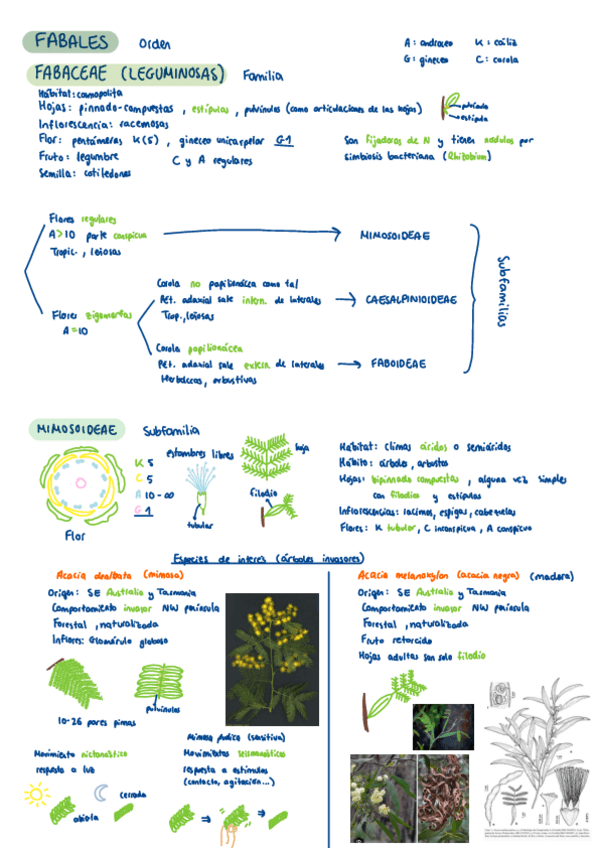 FABALES Orden
A: androceo K: cáliz
G: gineceo C: corola
FABACEAE (LEGUMINOSAS) Familia
Hábitat: cosmopolita
Hojas: pinnado-compuestas, estípulas, pulvínulos (como articulaciones de las hojas)
pulvínulo
estípula
Inflorescencia: racemosas
Flor: pentámeras K(5), gineceo unicarpelar G1
Son fijadoras de N y tienen nódulos por
Fruto: legumbre C y A regulares
simbiosis bacteriana (Rhizobium)
Semilla: cotiledones
Flores regulares
A>10 parte conspicua
Tropic., leñosas
MIMOSOIDEAE
Corola no papilionácea como tal
Pet. adaxial sale intern. de laterales
Trop., leñosas
CAESALPINIOIDEAE
Flores zigomorfas
A=10
Corola papilionácea
Pet. adaxial sale extern. de laterales
Herbáceas, arbustivas
FABOIDEAE
Subfamilias
MIMOSOIDEAE Subfamilia
K 5
C 5
A 10-∞
G 1
Flor
estambres libres
tubular
hoja
filodio
Hábitat: climas áridos o semiáridos
Hábito: árboles, arbustos
Hojas: bipinnado compuestas, alguna vez simples
con filodios y estípulas
Inflorescencias: racimos, espigas, cabezuelas
Flores: K tubular, C inconspicua, A conspicuo
Especies de interés (árboles invasores)
Acacia dealbata (mimosa)
Origen: SE Australia y Tasmania
Comportamiento invasor NW península
Forestal, naturalizada
Inflores: Glomérulo globoso
10-26 pares pinnas
pulvínulos
Movimiento nictinástico
respuesta a luz
abierta
cerrada
Mimosa pudica (sensitiva)
Movimientos seismonásticos
respuesta a estímulos
(contacto, agitación...)
Acacia melanoxylon (acacia negra) (madera)
Origen: SE Australia y Tasmania
Comportamiento invasor NW península
Forestal, naturalizada
Fruto retorcido
Hojas adultas son solo filodio